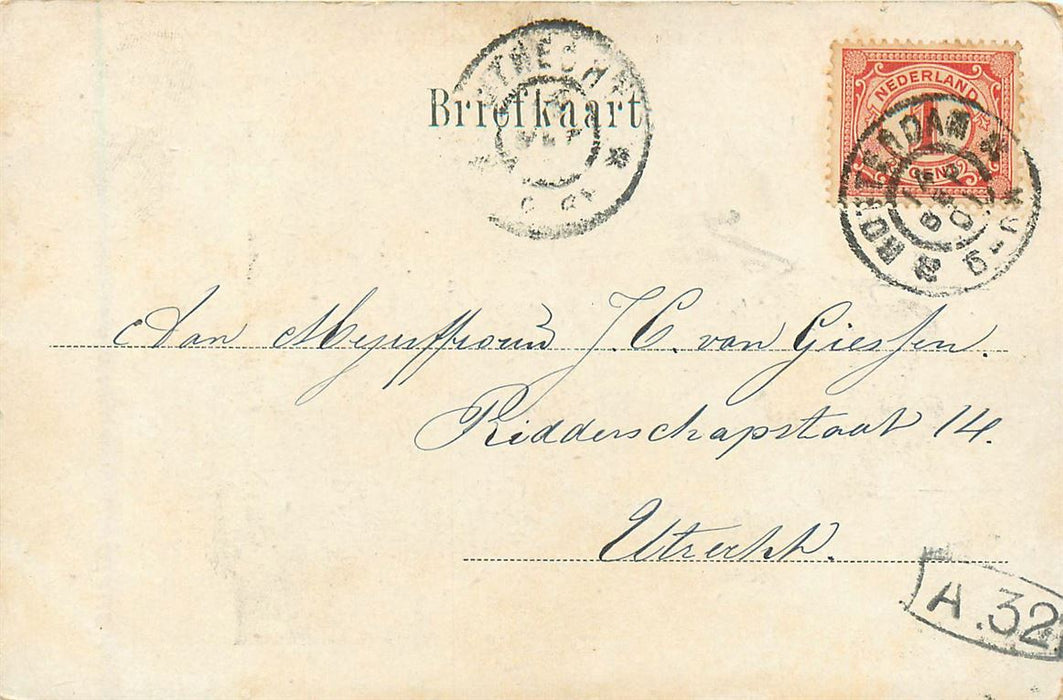 UTRECHT
Briefkaart
NEDERLAND
1
CENT
ROTTERDAM
5-6N
Aan Mejuffrouw J. C. van Giessen.
Ridderschapstraat 14.
Utrecht.
A.32